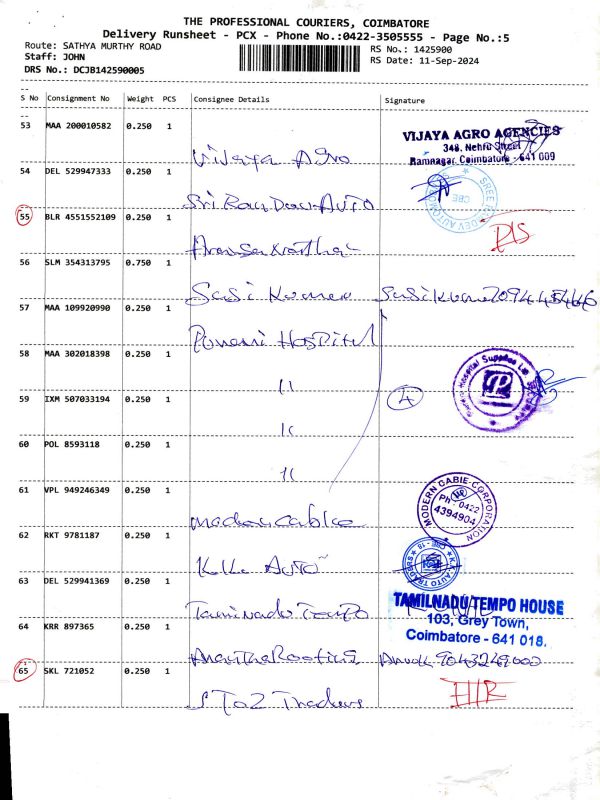 THE PROFESSIONAL COURIERS, COIMBATORE
Delivery Runsheet - PCX - Phone No.:0422-3505555 - Page No.:5
Route: SATHYA MURTHY ROAD
Staff: JOHN
DRS No.: DCJB142590005
RS No.: 1425900
RS Date: 11-Sep-2024
S No Consignment No Weight PCS Consignee Details Signature
53 MAA 200010582 0.250 1
Vijaya Agro
VIJAYA AGRO AGENCIES
348, Nehru Street
Ramnagar, Coimbatore - 641 009
54 DEL 529947333 0.250 1
Sri Ran Dev Auto
CBE
55 BLR 4551552109 0.250 1
56 SLM 354313795 0.750 1
Sasi Kumar
57 MAA 109920990 0.250 1
Hospital
58 MAA 302018398 0.250 1
11
4
Hospital Supplies
59 IXM 507033194 0.250 1
11
60 POL 8593118 0.250 1
11
61 VPL 949246349 0.250 1
Modern Cable
MODERN CABLE CORPORATION
Ph 0422
4394904
62 RKT 9781187 0.250 1
K.K. Auto
AUTO TRADERS
63 DEL 529941369 0.250 1
Taminadu Tempo
TAMILNADU TEMPO HOUSE
103, Grey Town,
Coimbatore - 641 018.
64 KRR 897365 0.250 1
9043249000
65 SKL 721052 0.250 1
S Toz Traders